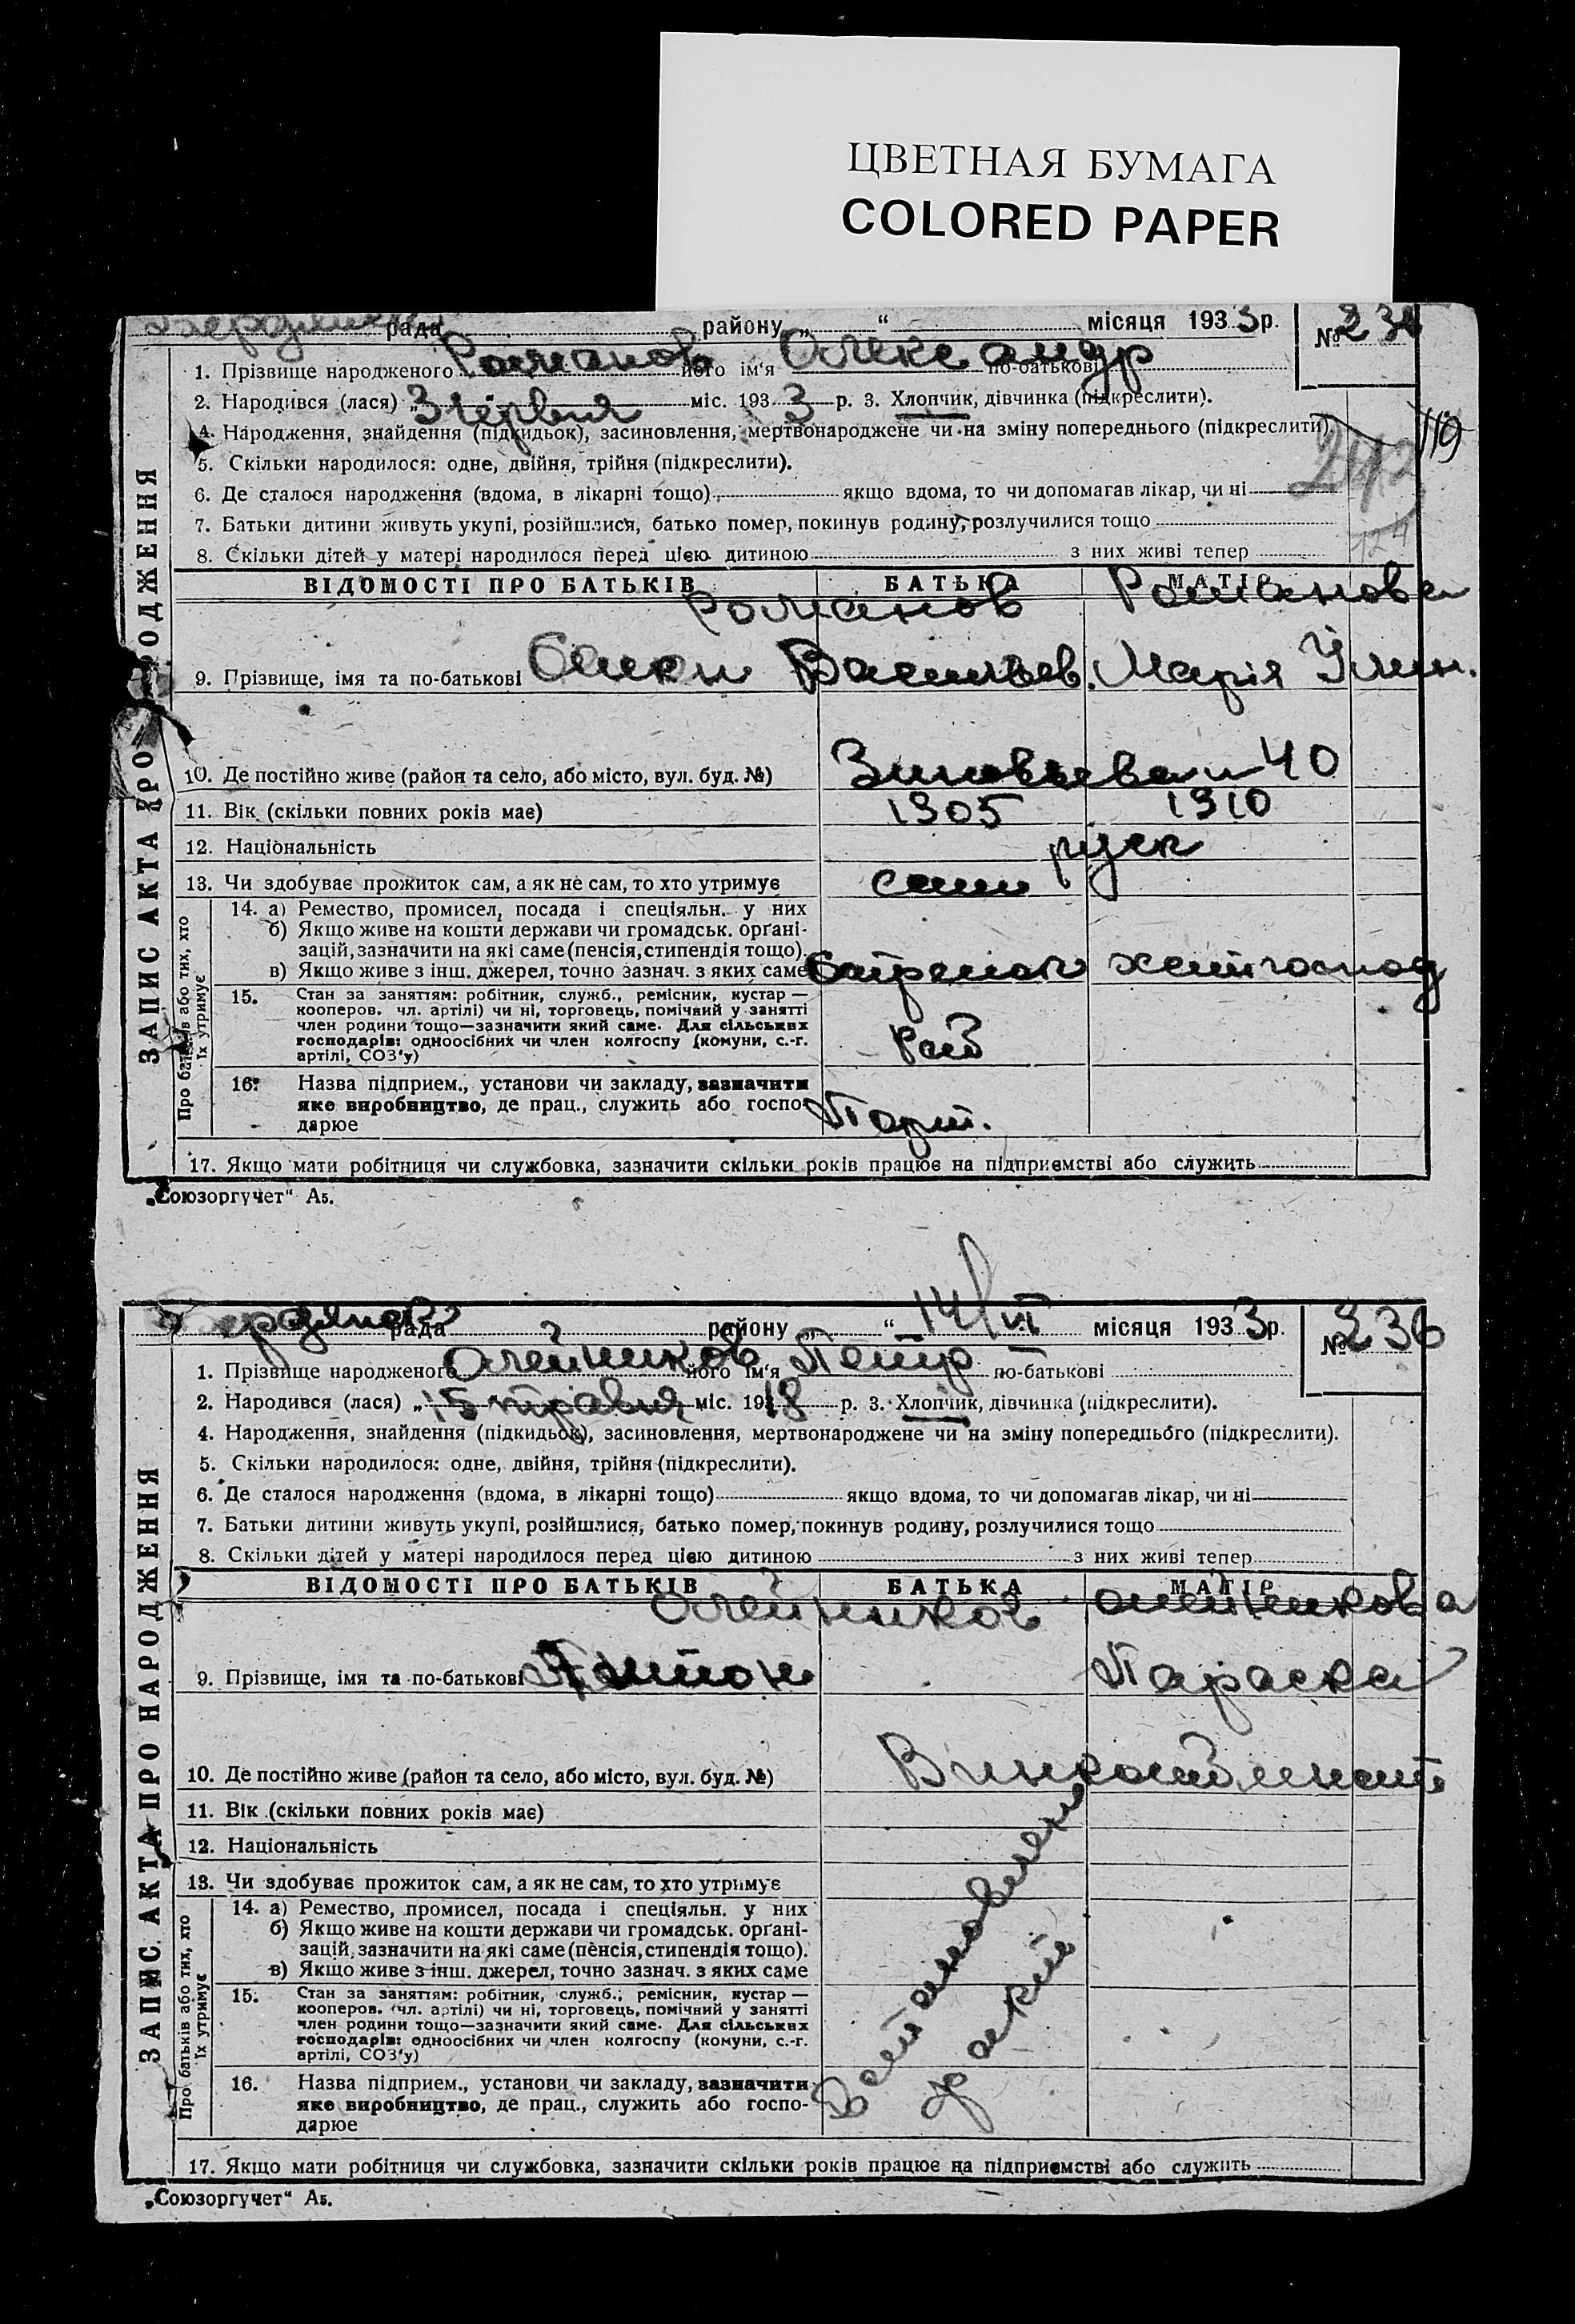 ЦВЕТНАЯ БУМАГА
COLORED PAPER
рада района „ “ місяця 1933 р. №
1. Прізвище народженого Романов його ім'я Олександр по-батькові
2. Народився (лася) „3 червня міс. 1933 р. 3. Хлопчик, дівчинка (підкреслити).
4. Народження, знайдення (підкидьок), засиновлення, мертвонароджене чи на зміну попереднього (підкреслити)
119
242
5. Скільки народилося: одне, двійня, трійня (підкреслити).
6. Де сталося народження (вдома, в лікарні тощо) якщо вдома, то чи допомагав лікар, чи ні
7. Батьки дитини живуть укупі, розійшлися, батько помер, покинув родину, розлучилися тощо
124
8. Скільки дітей у матері народилося перед цією дитиною з них живі тепер
ВІДОМОСТІ ПРО БАТЬКІВ БАТЬКА МАТІР
Романов Романова
9. Прізвище, імя та по-батькові Васильев. Марія
10. Де постійно живе (район та село, або місто, вул. буд. №) 40
11. Вік (скільки повних років має) 1905 1910
12. Національність руск
13. Чи здобуває прожиток сам, а як не сам, то хто утримує сами
14. а) Ремество, промисел, посада і спеціяльн. у них
б) Якщо живе на кошти держави чи громадськ. орґані-
зацій, зазначити на які саме (пенсія, стипендія тощо).
в) Якщо живе з інш. джерел, точно зазнач. з яких саме
15. Стан за заняттям: робітник, служб., ремісник, кустар —
кооперов. чл. артілі) чи ні, торговець, помічний у занятті
член родини тощо—зазначити який саме. Для сільських
господарів: одноосібних чи член колгоспу (комуни, с.-г.
артілі, СОЗ'у)
Раб
16. Назва підприєм., установи чи закладу, зазначити
яке виробництво, де прац., служить або госпо-
дарює
17. Якщо мати робітниця чи службовка, зазначити скільки років працює на підприємстві або служить
ЗАПИС АКТА ПРО НАРОДЖЕННЯ
Про батьків або тих, хто
їх утримує
„Союзоргучет“ Аб.
рада району „ “ 14/VI місяця 1933 р. № 236
1. Прізвище народженого Олейников його ім'я Петир по-батькові
2. Народився (лася) „15 травня міс. 1918 р. 3. Хлопчик, дівчинка (підкреслити).
4. Народження, знайдення (підкидьок), засиновлення, мертвонароджене чи на зміну попереднього (підкреслити).
5. Скільки народилося: одне, двійня, трійня (підкреслити).
6. Де сталося народження (вдома, в лікарні тощо) якщо вдома, то чи допомагав лікар, чи ні
7. Батьки дитини живуть укупі, розійшлися, батько помер, покинув родину, розлучилися тощо
8. Скільки дітей у матері народилося перед цією дитиною з них живі тепер
ВІДОМОСТІ ПРО БАТЬКІВ БАТЬКА МАТІР
Олейников Олейникова
9. Прізвище, імя та по-батькові Антон Параска
10. Де постійно живе (район та село, або місто, вул. буд. №)
11. Вік (скільки повних років має)
12. Національність
13. Чи здобуває прожиток сам, а як не сам, то хто утримує
14. а) Ремество, промисел, посада і спеціяльн. у них
б) Якщо живе на кошти держави чи громадськ. орґані-
зацій, зазначити на які саме (пенсія, стипендія тощо).
в) Якщо живе з інш. джерел, точно зазнач. з яких саме
15. Стан за заняттям: робітник, служб., ремісник, кустар —
кооперов. (чл. артілі) чи ні, торговець, помічний у занятті
член родини тощо—зазначити який саме. Для сільських
господарів: одноосібних чи член колгоспу (комуни, с.-г.
артілі, СОЗ'у)
16. Назва підприєм., установи чи закладу, зазначити
яке виробництво, де прац., служить або госпо-
дарює
17. Якщо мати робітниця чи службовка, зазначити скільки років працює на підприємстві або служить
ЗАПИС АКТА ПРО НАРОДЖЕННЯ
Про батьків або тих, хто
їх утримує
„Союзоргучет“ Аб.